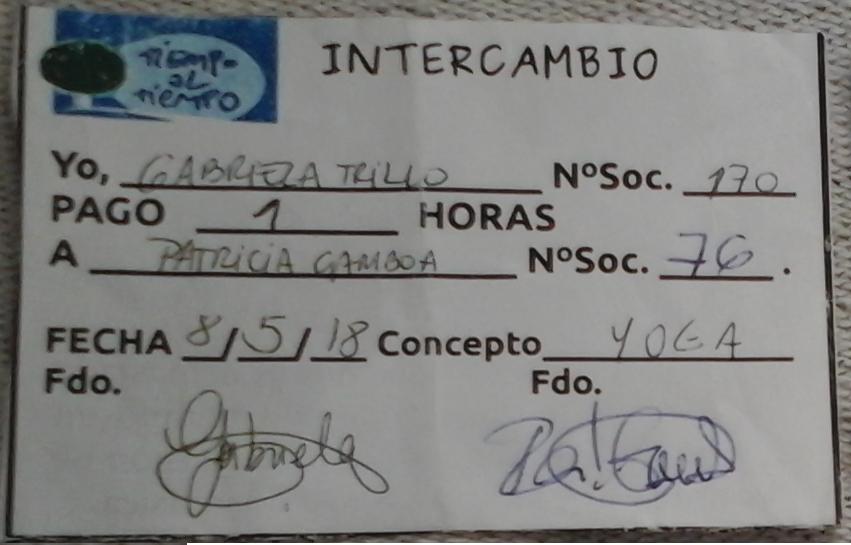 TIEMPO
AL
TIEMPO
INTERCAMBIO
Yo, GABRIELA TRILLO NºSoc. 170
PAGO 1 HORAS
A PATRICIA GAMBOA NºSoc. 76.
FECHA 8/5/18 Concepto YOGA
Fdo. Fdo.
Gabriela